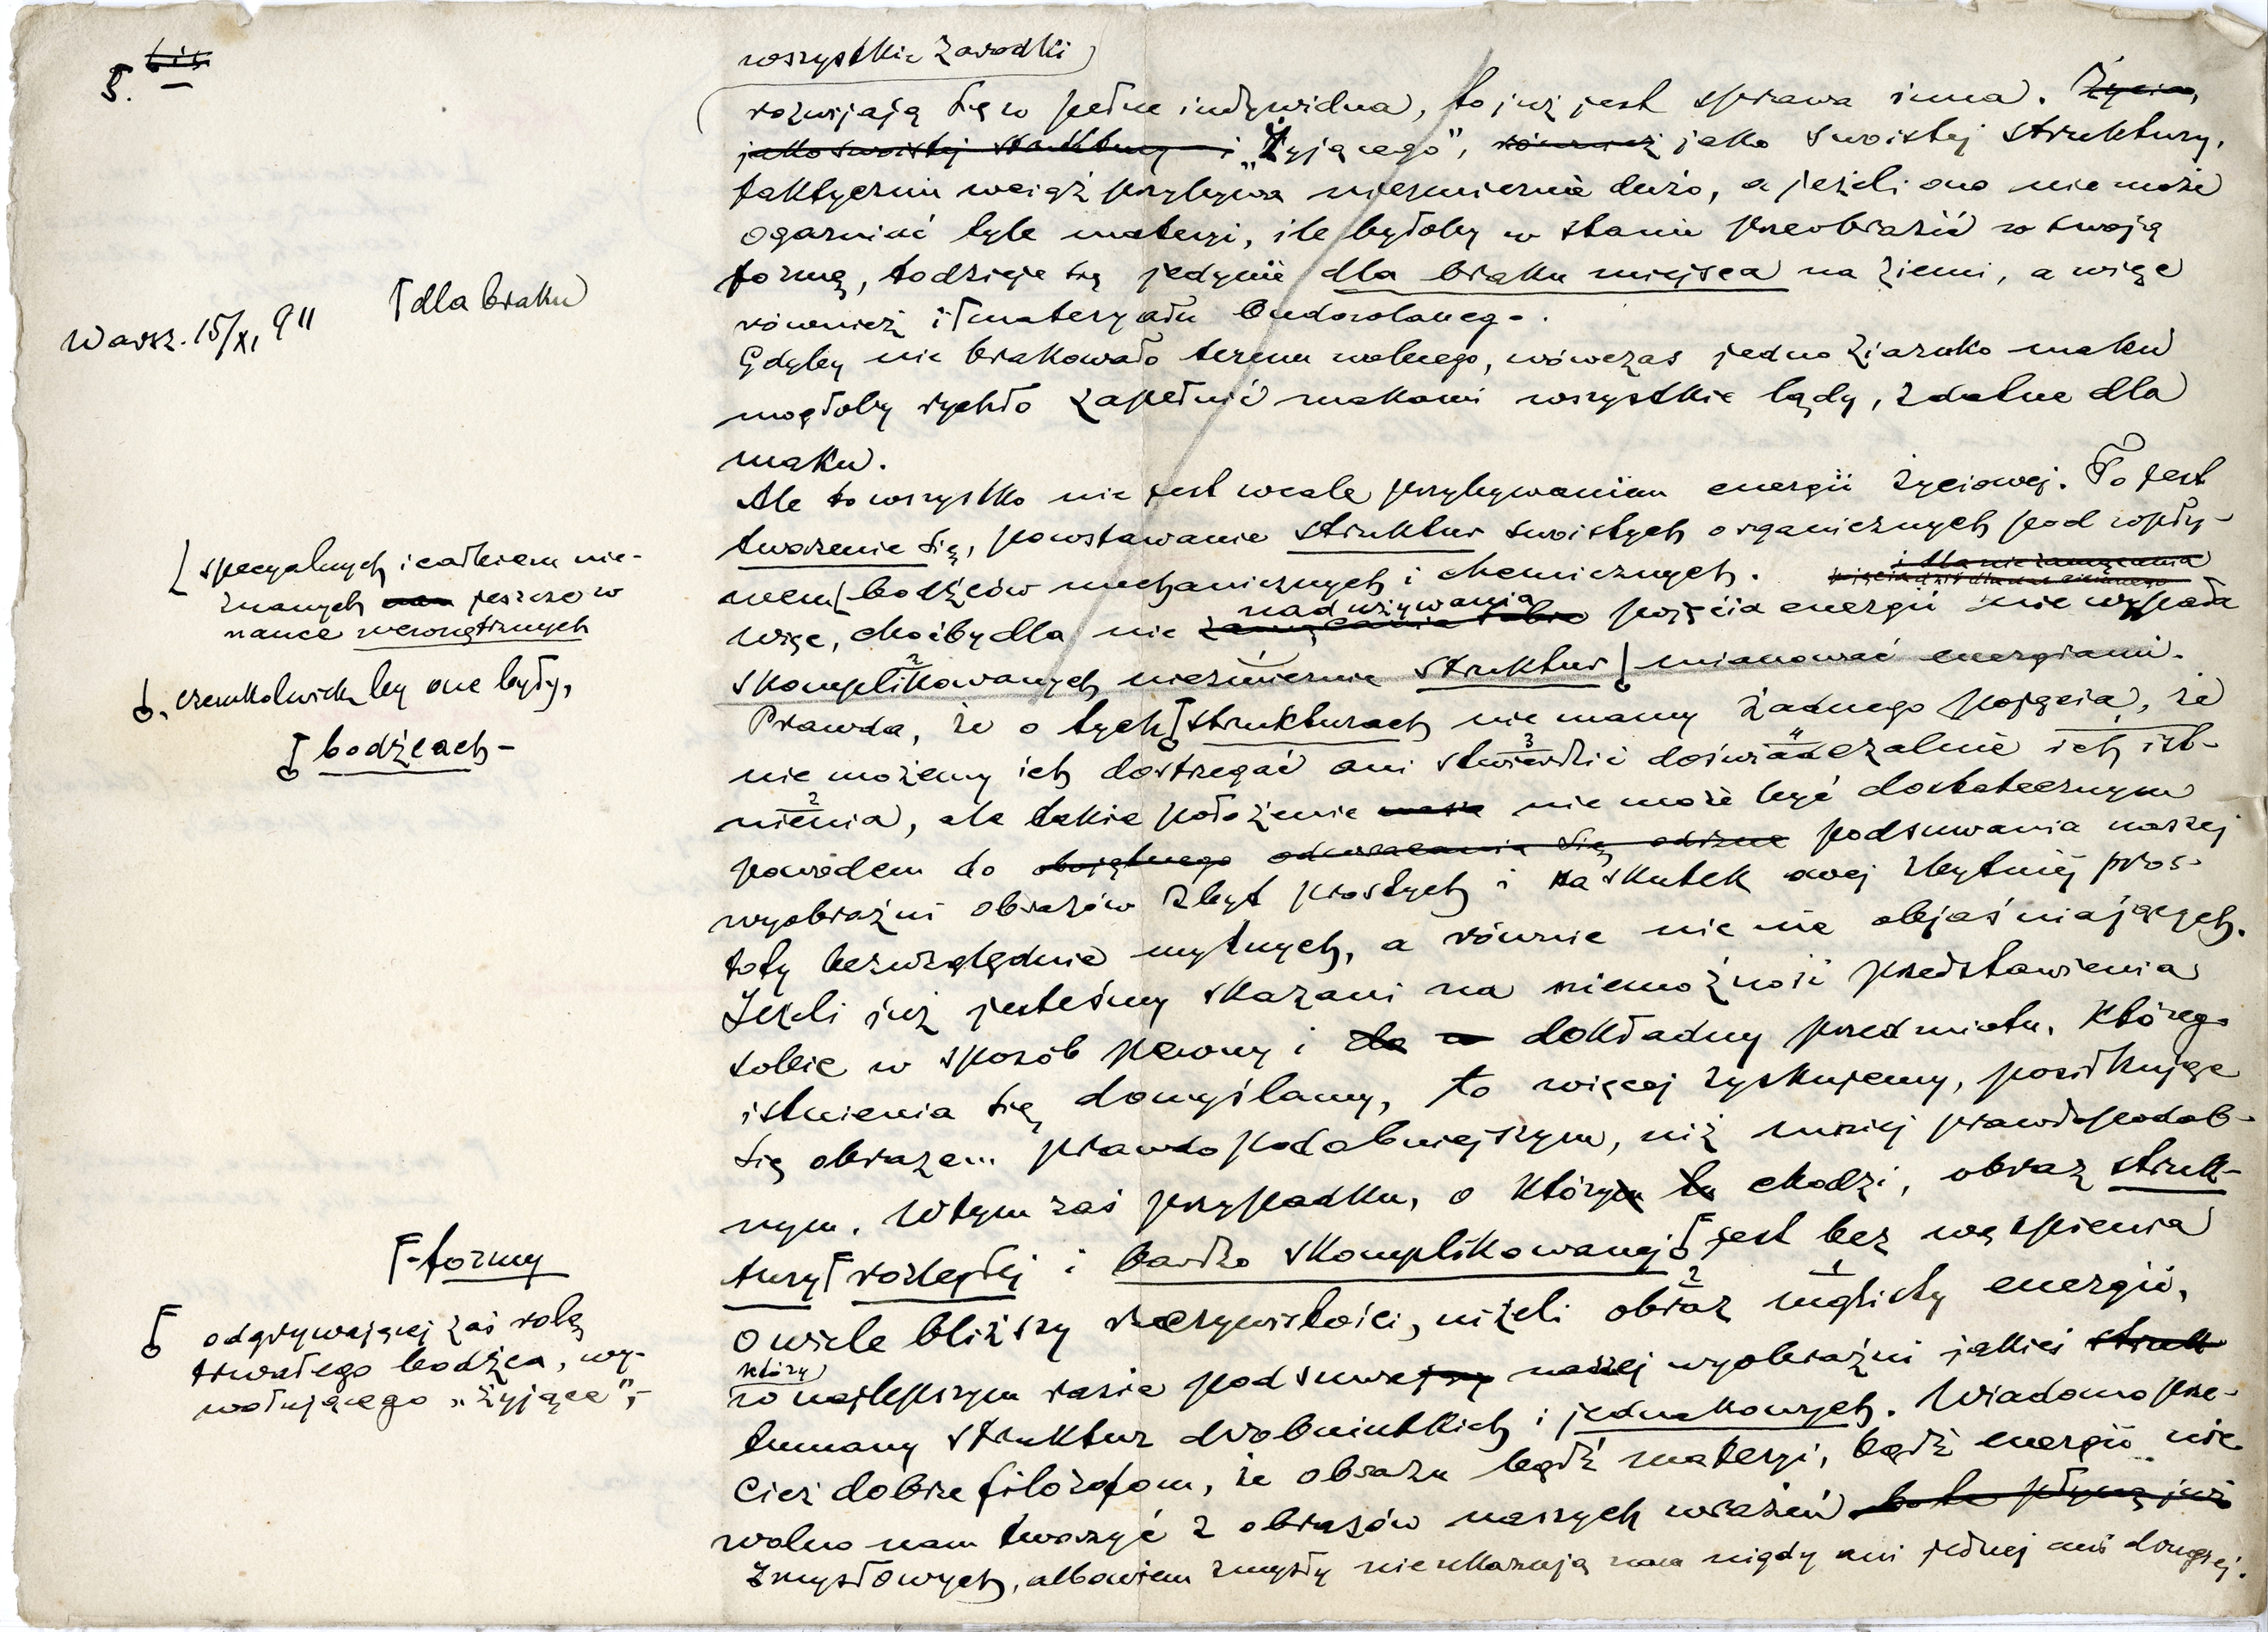 5. bis
wszystkie zarodki
rozwijają się w pełne indywidua, to już jest sprawa inna. Życia,
jako swoistej struktury i „Żyjącego”, również jako swoistej struktury,
faktycznie wciąż przybywa niezmiernie dużo, a jeżeli ono nie może
ogarniać tyle materyi, ile byłoby w stanie przeobrazić w swoją
formę, to dzieje się jedynie dla braku miejsca na ziemi, a więc
również i materyału budowlanego.
Warsz. 15/XI, 911
dla braku
Gdyby nie brakowało terenu wolnego, wówczas jedno ziarnko maku
mogłoby rychło zapełnić makami wszystkie lądy, zdatne dla
maku.
Ale to wszystko nie jest wcale przybywaniem energii życiowej. To jest
tworzenie się, powstawanie struktur swoistych organicznych pod wpły-
wem bodźców mechanicznych i chemicznych.
specyalnych i całkiem nie-
znanych jeszcze w
nauce wewnętrznych
i dla nie zamącenia
więc, choćby dla nie nadużywania pojęcia energii nie wypada
skomplikowanych niezmiernie struktur mianować energiami.
, czemkolwiek by one były,
Prawda, że o tych strukturach nie mamy żadnego pojęcia, że
bodźcach -
nie możemy ich dostrzegać ani stwierdzić doświadczalnie ich ist-
nienia, ale takie położenie nasze nie może być dostatecznym
powodem do obojętnego odwracania się odizne podsuwania naszej
wyobraźni obrazów zbyt prostych i na skutek owej zbytniej pros-
toty bezwzględnie mylnych, a równie nic nie objaśniających.
Jeżeli już jesteśmy skazani na niemożność przedstawienia
sobie w sposób pewny i do dokładny przedmiotu, którego
istnienia się domyślamy, to więcej zyskujemy, posiłkując
się obrazem prawdopodobniejszym, niż mniej prawdopodob-
nym. W tym zaś przypadku, o który tu chodzi, obraz struk-
tury rozległej i bardzo skomplikowanej jest bez wątpienia
-formy
odgrywającej zaś rolę
trwałego bodźca, wy-
wołującego „żyjące”,-
o wiele bliższy rzeczywistości, niżeli obraz mglisty energii,
który
w najlepszym razie podsuwa naszej wyobraźni jakieś struk
tumany struktur drobniutkich i jednakowych. Wiadomo prze-
cież dobrze filozofom, że obrazu bądź materyi, bądź energii nie
wolno nam tworzyć z obrazów naszych wrażeń bo te płyną już
zmysłowych, albowiem zmysły nie ukazują nam nigdy ani jednej ani drugiej.